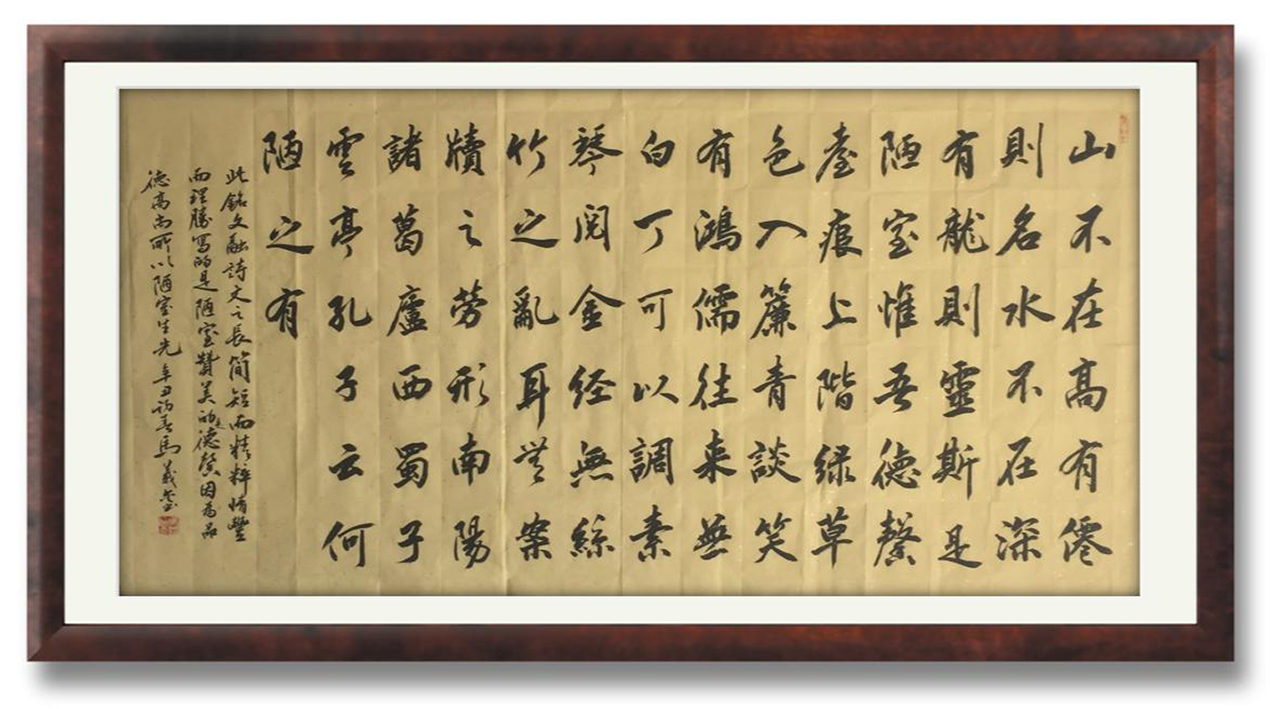 山不在高有僊
則名水不在深
有龍則靈斯是
陋室惟吾德馨
臺痕上階緑草
色入簾青談笑
有鴻儒往来無
白丁可以調素
琴閲金经無絲
竹之亂耳無案
牘之劳形南陽
諸葛廬西蜀子
雲亭孔子云何
陋之有
此銘文融詩文之長简短而精粹情豐
而理勝寫的是陋室贊美的德馨因為品
德高尚所以陋室生光辛丑初春馬義